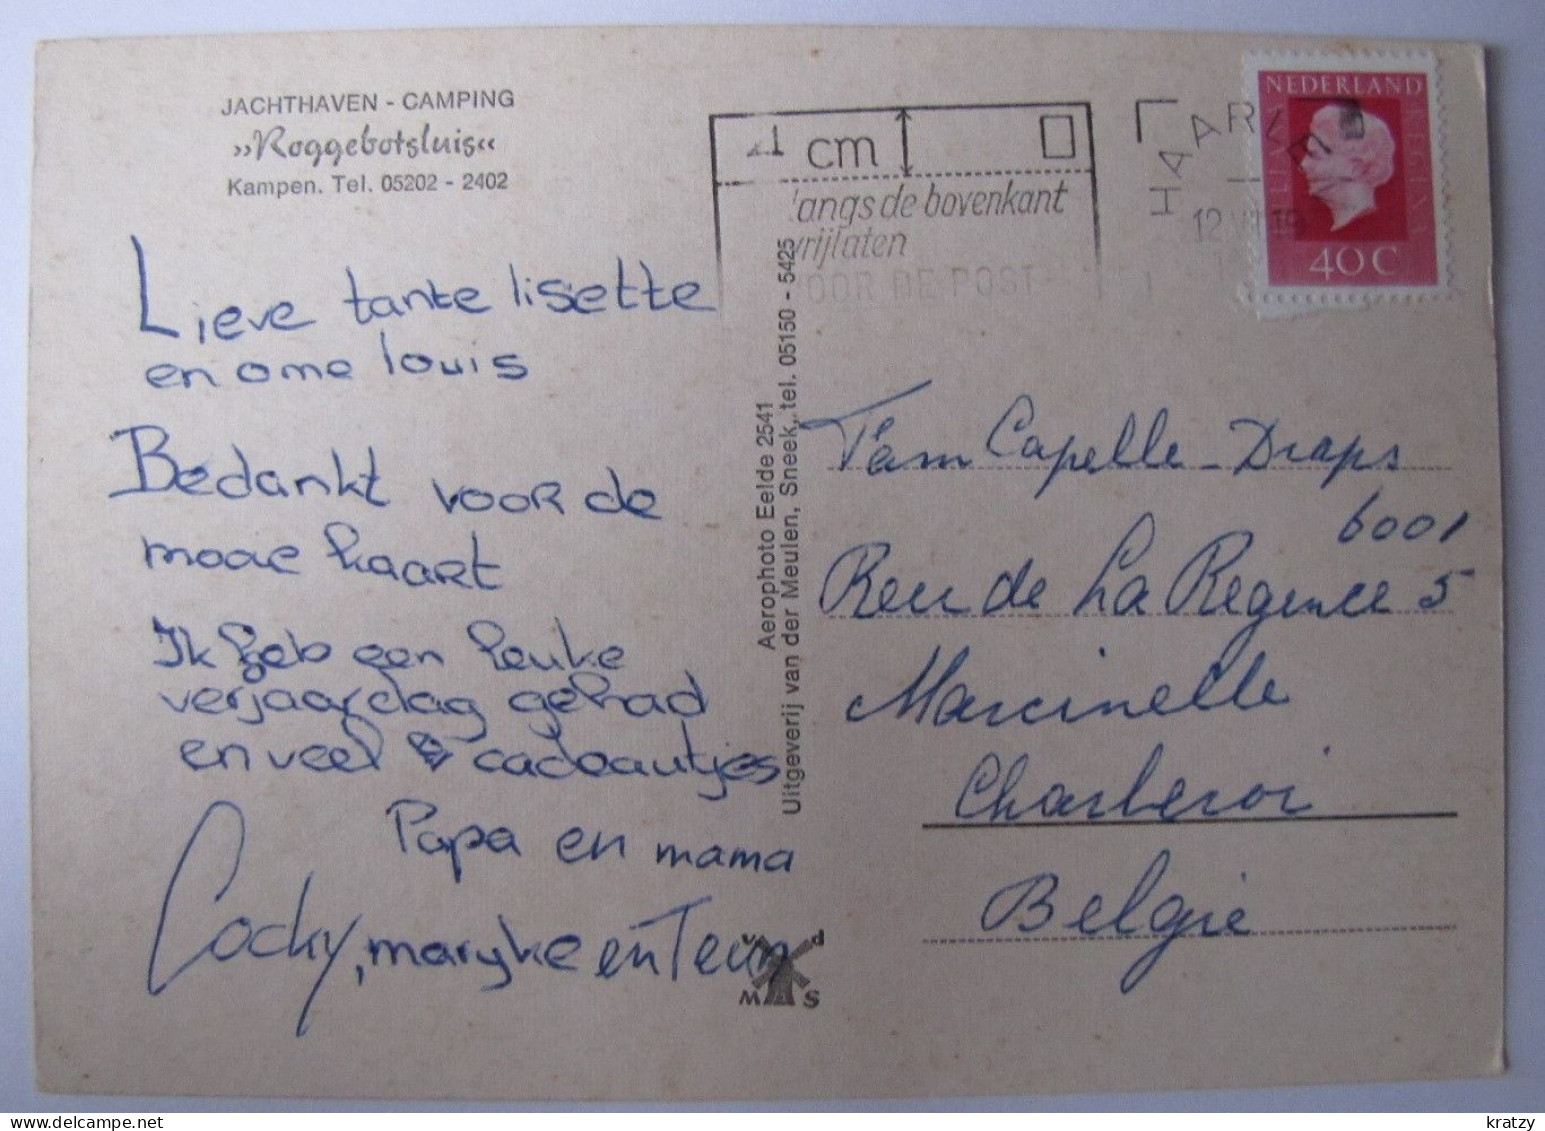 JACHTHAVEN - CAMPING
„Roggebotsluis“
Kampen. Tel. 05202 - 2402
Lieve tante lisette
en ome louis
Bedankt voor de
mooie kaart
Ik heb een leuke
verjaardag gehad
en veel cadeautjes
Papa en mama
Cocky, maryke en Teun
Aerophoto Eelde 2541
Uitgeverij van der Meulen, Sneek, tel. 05150 - 5425
v d
M S
1 cm
langs de bovenkant
vrijlaten
VOOR DE POST
HAARLEM
12 VI 19
NEDERLAND
JULIANA REGINA
40 C
Fam Capelle-Draps
6001
Reu de La Regence 5
Marcinelle
Charleroi
België
kratzy